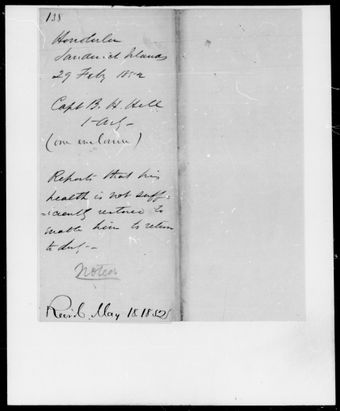 138
Honolulu
Sandwich Islands
29 Feby 1852
Capt B. H. Hill
1 Art.
(one enclosure)
Reports that his
health is not suffi-
-ciently restored to
enable him to return
to duty.
Noted
Recd. May 18 1852